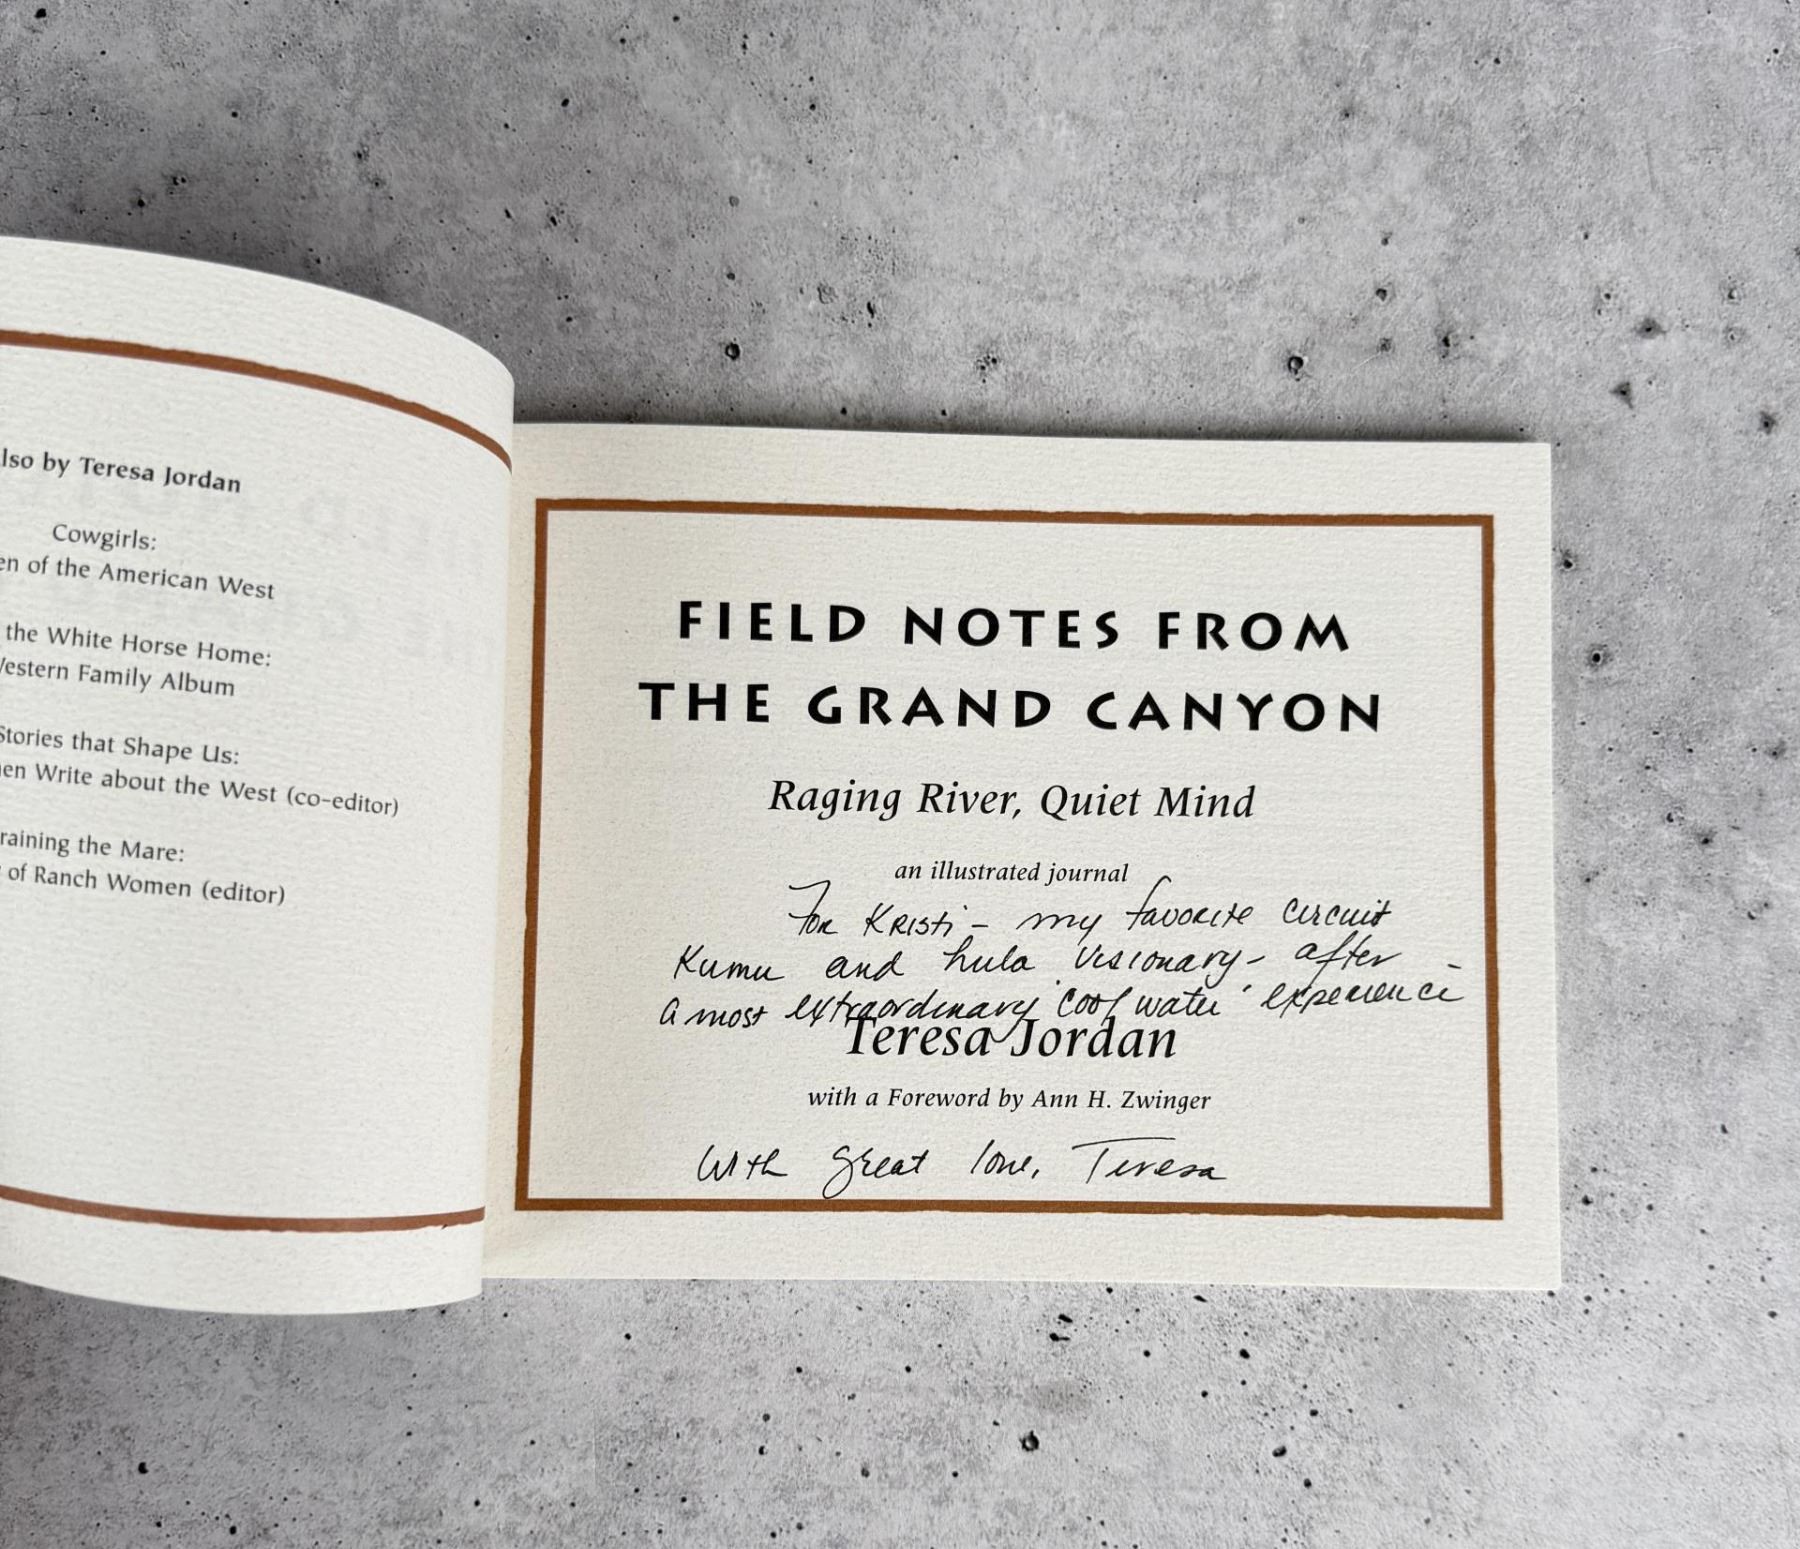 lso by Teresa Jordan
Cowgirls:
en of the American West
the White Horse Home:
Western Family Album
Stories that Shape Us:
en Write about the West (co-editor)
raining the Mare:
of Ranch Women (editor)
FIELD NOTES FROM
THE GRAND CANYON
Raging River, Quiet Mind
an illustrated journal
For Kristi – my favorite circuit
Kumu and hula visionary – after –
a most extraordinary 'cool water' experience
Teresa Jordan
with a Foreword by Ann H. Zwinger
With great love, Teresa